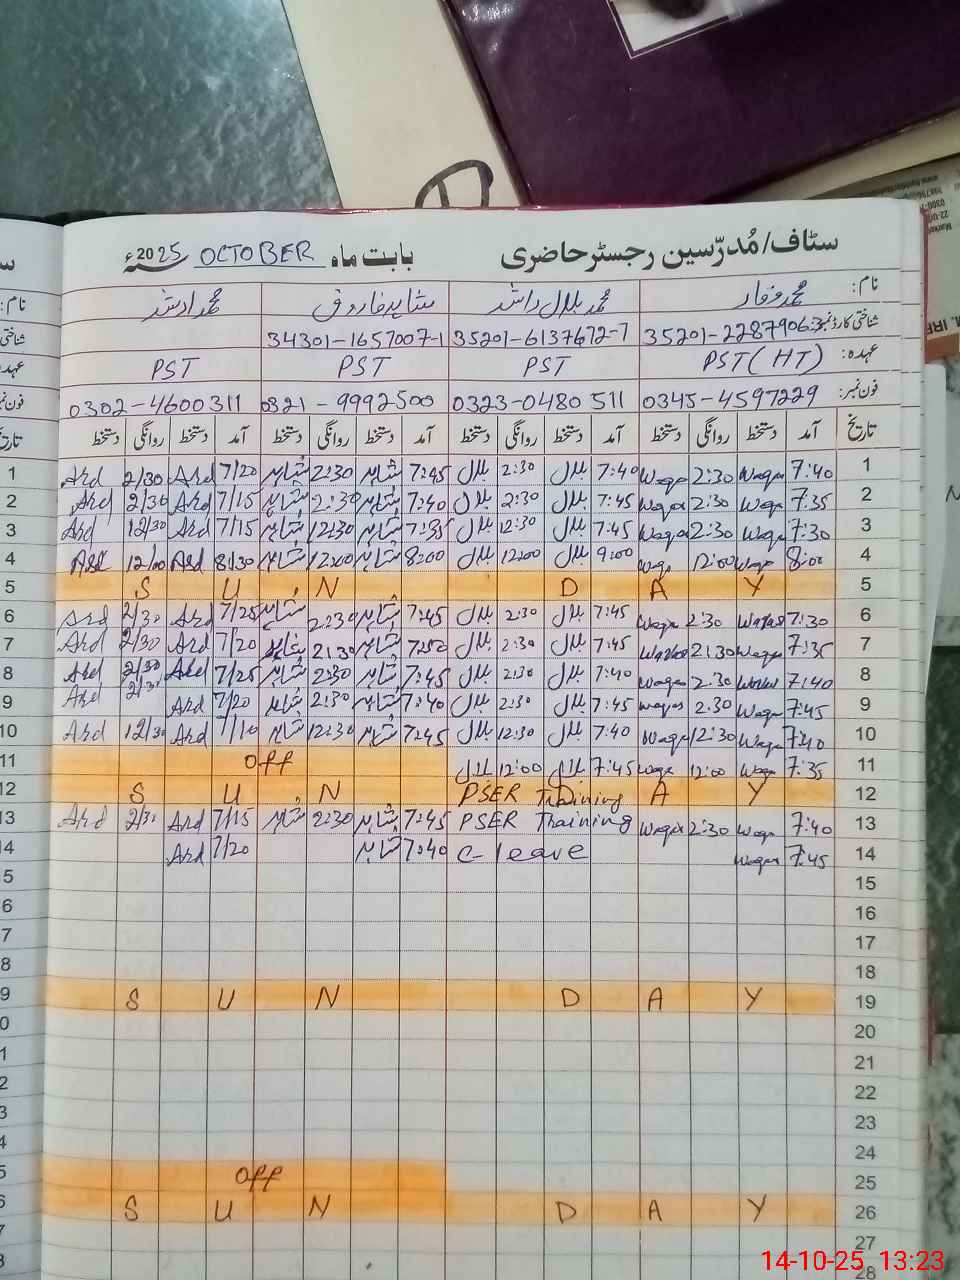 سٹاف/مُدرّسین رجسٹر حاضری بابت ماہ OCTOBER سنہ 2025ء
نام: محمد وقار محمد بلال راشد شاہد فاروق محمد ارشد
شناختی کارڈ نمبر: 35201-2287906-3 35201-6137672-7 34301-1657007-1
عہدہ: PST (HT) PST PST PST
فون نمبر: 0345-4597229 0323-0480511 0321-9992500 0302-4600311
تاریخ آمد دستخط روانگی دستخط آمد دستخط روانگی دستخط آمد دستخط روانگی دستخط آمد دستخط روانگی دستخط
1 7:40 Waqar 2:30 Waqar 7:40 بلال 2:30 بلال 7:45 شاہد 2:30 شاہد 7/20 Ard 2/30 Ard
2 7:35 Waqar 2:30 Waqar 7:45 بلال 2:30 بلال 7:40 شاہد 2:30 شاہد 7/15 Ard 2/30 Ard
3 7:30 Waqar 2:30 Waqar 7:45 بلال 12:30 بلال 7:35 شاہد 12:30 شاہد 7/15 Ard 12/30 Ard
4 8:00 Waqar 12:00 Waqar 9:00 بلال 12:00 بلال 8:00 شاہد 12:00 شاہد 8/30 Ard 12/00 Ard
5 S U N D A Y
6 7:30 Waqar 2:30 Waqar 7:45 بلال 2:30 بلال 7:45 شاہد 2:30 شاہد 7/25 Ard 2/30 Ard
7 7:35 Waqar 2:30 Waqar 7:45 بلال 2:30 بلال 7:50 شاہد 2:30 شاہد 7/20 Ard 2/30 Ard
8 7:40 Waqar 2:30 Waqar 7:40 بلال 2:30 بلال 7:45 شاہد 2:30 شاہد 7/25 Ard 2/30 Ard
9 7:45 Waqar 2:30 Waqar 7:45 بلال 2:30 بلال 7:40 شاہد 2:30 شاہد 7/20 Ard 2/30 Ard
10 7:40 Waqar 12:30 Waqar 7:40 بلال 12:30 بلال 7:45 شاہد 12:30 شاہد 7/10 Ard 12/30 Ard
11 7:35 Waqar 12:00 Waqar 7:45 بلال 12:00 بلال Off
12 S U N PSER Training D A Y
13 7:40 Waqar 2:30 Waqar PSER Training 7:45 شاہد 2:30 شاہد 7/15 Ard 2/30 Ard
14 7:45 Waqar C-leave 7:40 شاہد 7/20 Ard
15
16
17
18
19 S U N D A Y
20
21
22
23
24
25 Off
26 S U N D A Y
27
28
14-10-25 13:23